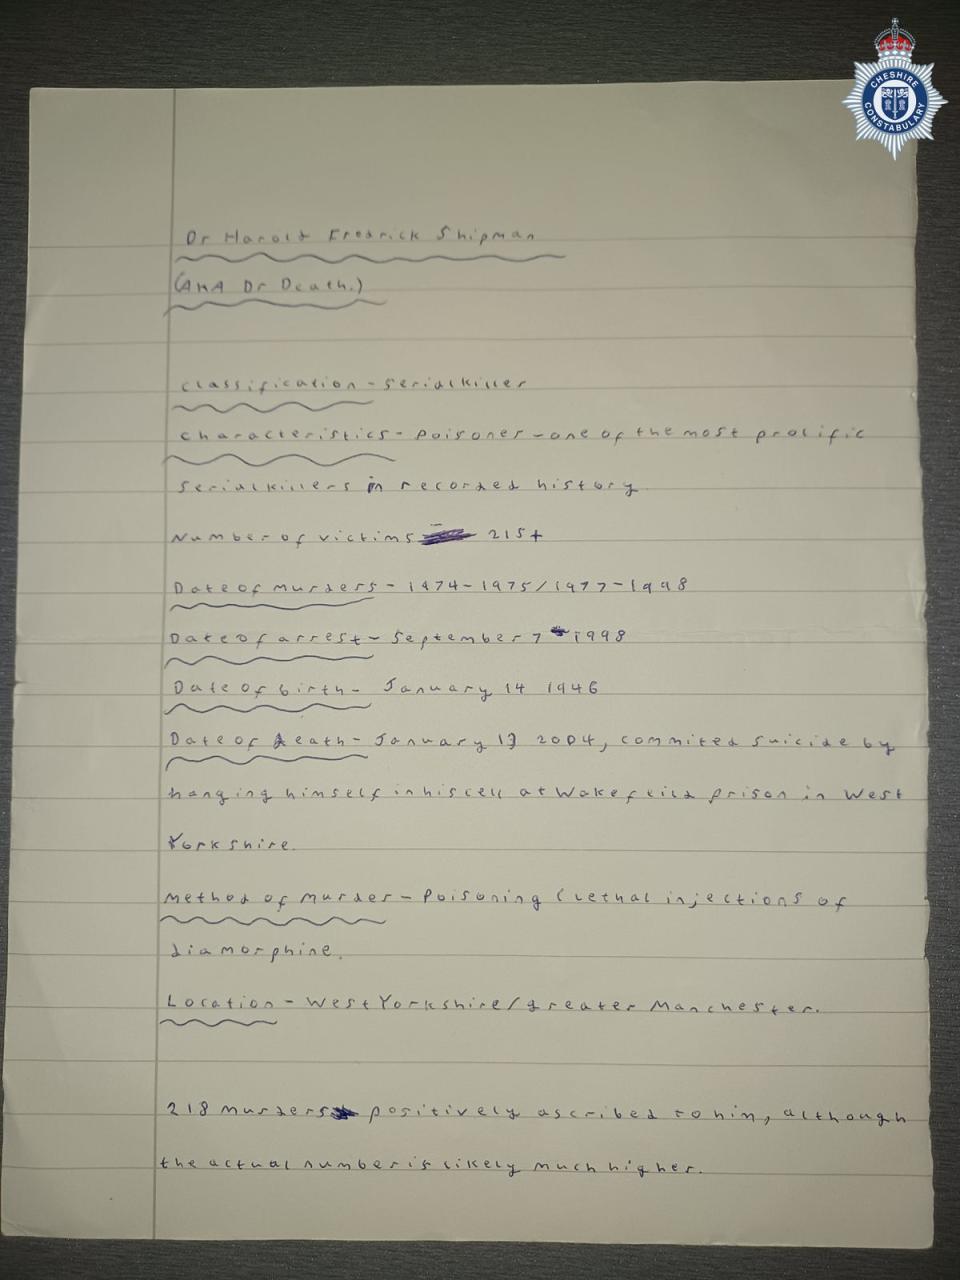 CHESHIRE
CONSTABULARY
Dr Harold Fredrick Shipman
(AKA Dr Death.)
classification - serialkiller
characteristics - poisoner - one of the most prolific
serialkillers in recorded history
Number of victims 215+
Date of murders - 1974-1975/1977-1998
Date of arrest - September 7 1998
Date of birth - January 14 1946
Date of death - January 13 2004, commited suicide by
hanging himself in his cell at Wakefeild prison in West
Yorkshire.
Method of murder - Poisoning (lethal injections of
diamorphine.
Location - West Yorkshire/greater Manchester.
218 murders positively ascribed to him, although
the actual number is likely much higher.